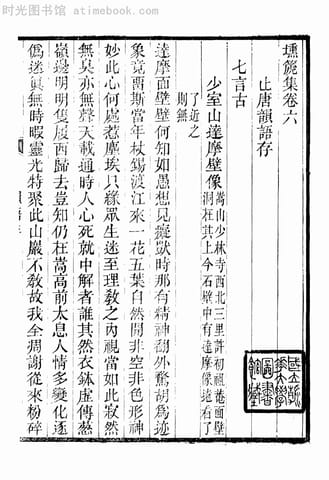 时光图书馆 atimebook.com
壎篪集卷六
止唐韻語存
七言古
少室山達摩壁像 嵩山少林寺西北三里許初祖菴面壁
洞在其上今石壁中有達摩像遠看了
了近之
則無
達摩面壁壁何知如愚想見癡獃時那有精神翻外騖胡為迹
象竟賈斯當年杖錫渡江來一花五葉自然開非空非色形神
妙此心何處惹塵埃只緣眾生迷至理教之內視當如此寂然
無臭亦無聲天載通時人心死就中解者誰其然衣鉢虛傳葱
嶺邊明明隻履西歸去豈知仍在嵩高前太息人情多變化逐
偽迷眞無時暇靈光特聚此山巖不教故我全凋謝從來粉碎